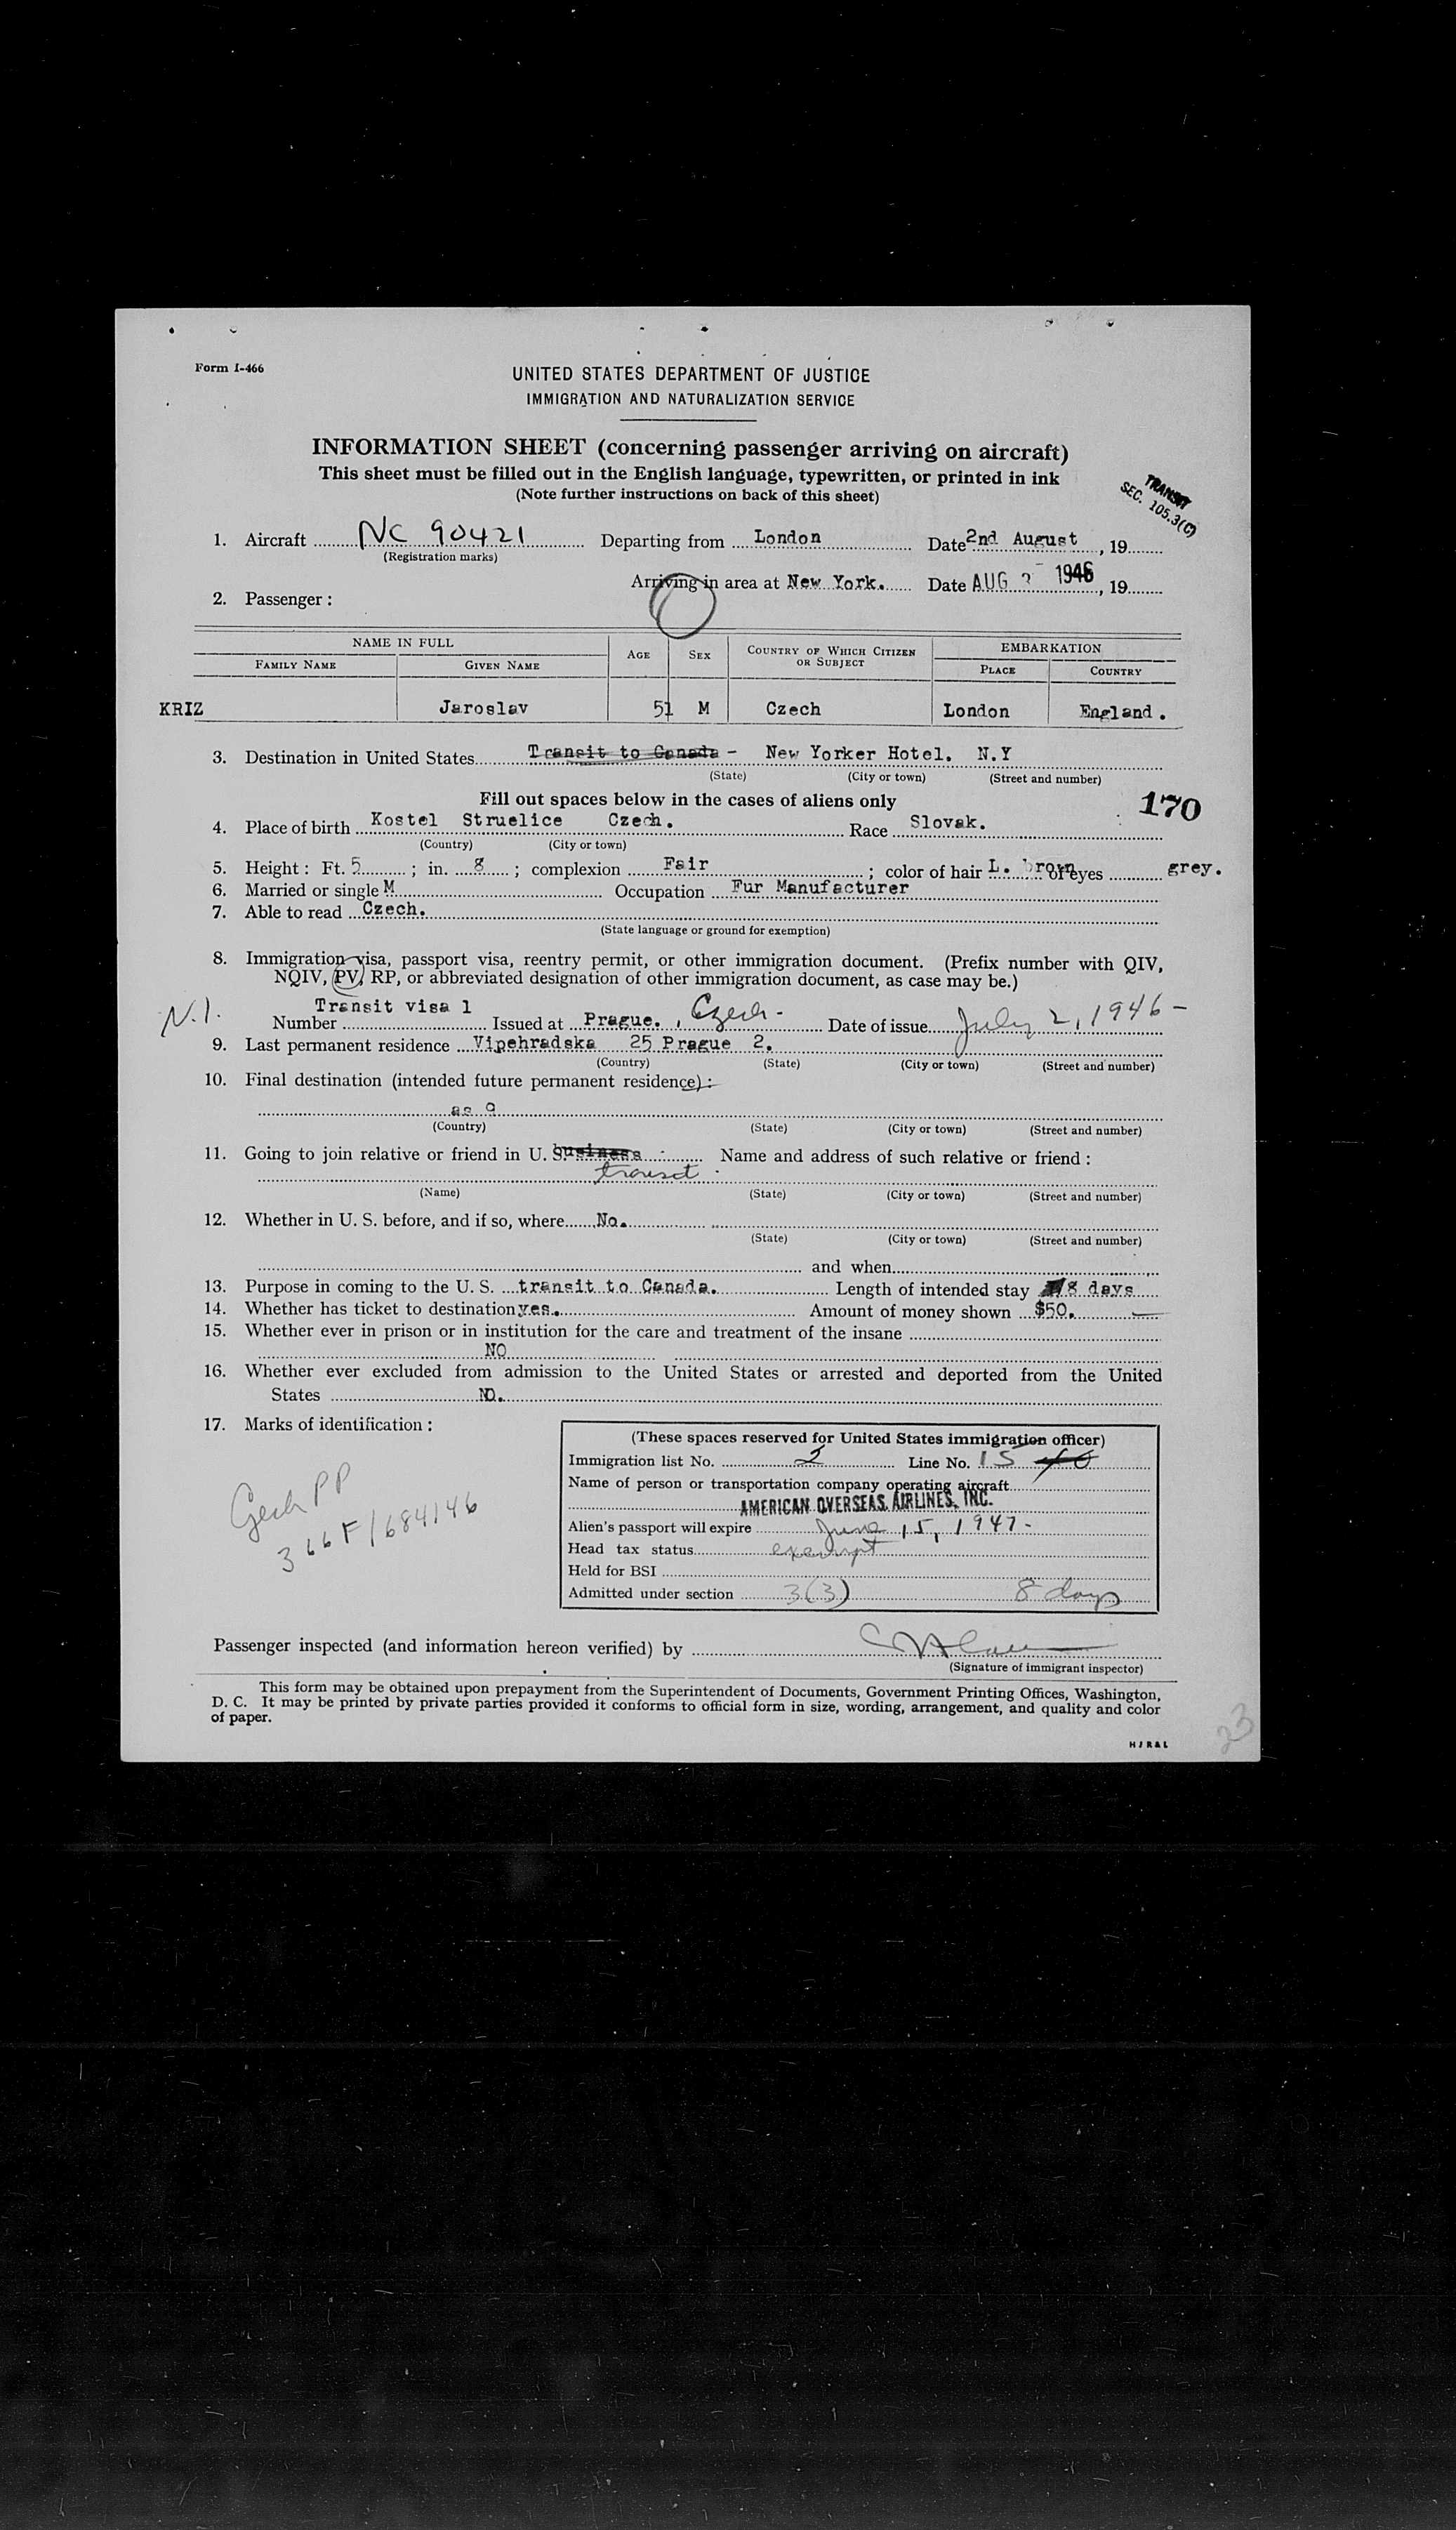 Form I-466
UNITED STATES DEPARTMENT OF JUSTICE
IMMIGRATION AND NATURALIZATION SERVICE
INFORMATION SHEET (concerning passenger arriving on aircraft)
This sheet must be filled out in the English language, typewritten, or printed in ink
(Note further instructions on back of this sheet)
TRANSIT
SEC. 105.3(C)
1. Aircraft NC 90421 Departing from London Date 2nd August, 19
(Registration marks)
Arriving in area at New York. Date AUG 1946, 19
2. Passenger:
NAME IN FULL AGE SEX COUNTRY OF WHICH CITIZEN OR SUBJECT EMBARKATION
FAMILY NAME GIVEN NAME PLACE COUNTRY
KRIZ Jaroslav 51 M Czech London England.
3. Destination in United States Transit to Canada - New Yorker Hotel. N.Y
(State) (City or town) (Street and number)
Fill out spaces below in the cases of aliens only
170
4. Place of birth Kostel Struelice Czech. Race Slovak.
(Country) (City or town)
5. Height: Ft. 5; in. 8; complexion Fair; color of hair L. brown of eyes grey.
6. Married or single M Occupation Fur Manufacturer
7. Able to read Czech.
(State language or ground for exemption)
8. Immigration visa, passport visa, reentry permit, or other immigration document. (Prefix number with QIV,
NQIV, PV, RP, or abbreviated designation of other immigration document, as case may be.)
N.I. Transit visa 1
Number Issued at Prague., Czech- Date of issue July 2, 1946-
9. Last permanent residence Vipehradska 25 Prague 2.
(Country) (State) (City or town) (Street and number)
10. Final destination (intended future permanent residence):
as 9
(Country) (State) (City or town) (Street and number)
11. Going to join relative or friend in U. S. business Name and address of such relative or friend:
transit
(Name) (State) (City or town) (Street and number)
12. Whether in U. S. before, and if so, where No.
(State) (City or town) (Street and number)
and when
13. Purpose in coming to the U. S. transit to Canada. Length of intended stay 8 days
14. Whether has ticket to destination yes. Amount of money shown $50.
15. Whether ever in prison or in institution for the care and treatment of the insane
NO
16. Whether ever excluded from admission to the United States or arrested and deported from the United
States NO.
17. Marks of identification:
(These spaces reserved for United States immigration officer)
Immigration list No. 2 Line No. 15 40
Name of person or transportation company operating aircraft
AMERICAN OVERSEAS AIRLINES, INC.
Alien's passport will expire June 15, 1947-
Head tax status exempt
Held for BSI
Admitted under section 3(3) 8 days
Czech PP
366F/684146
Passenger inspected (and information hereon verified) by
(Signature of immigrant inspector)
This form may be obtained upon prepayment from the Superintendent of Documents, Government Printing Offices, Washington,
D. C. It may be printed by private parties provided it conforms to official form in size, wording, arrangement, and quality and color
of paper.
H/R&L
23